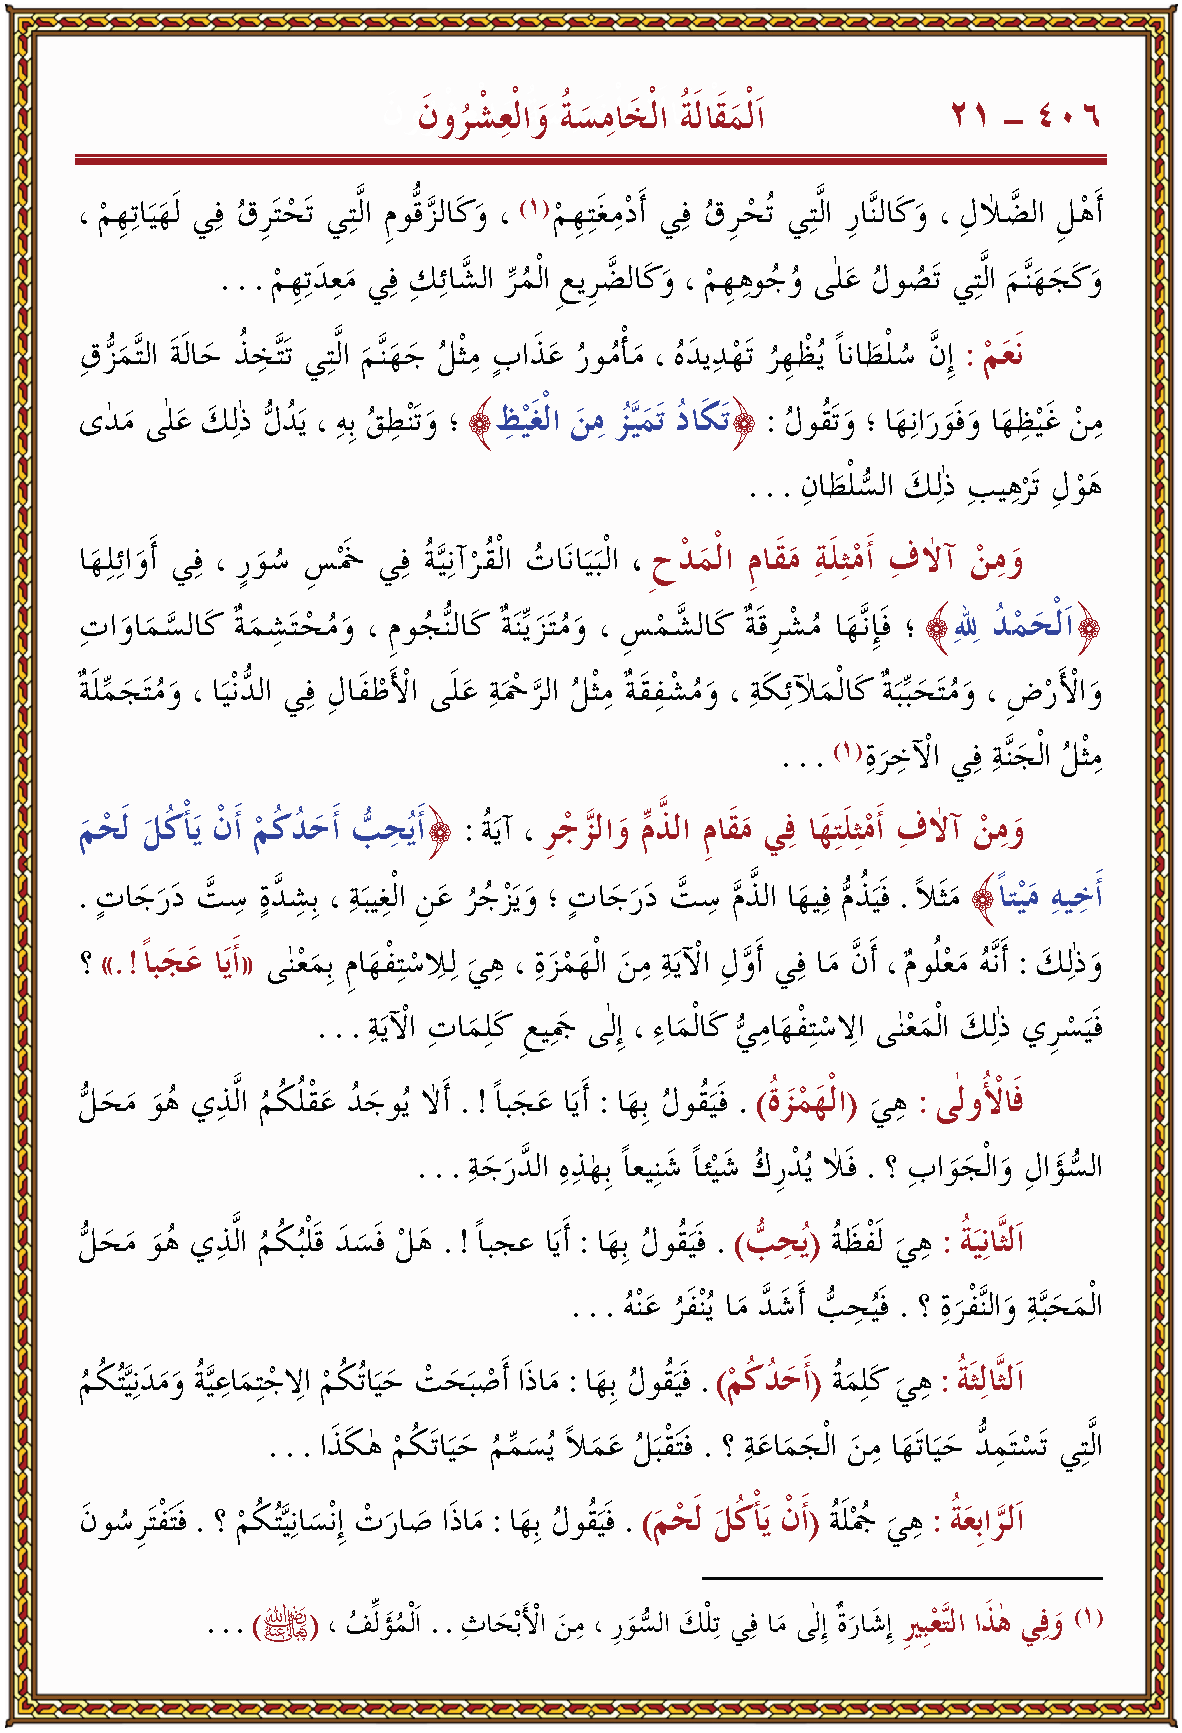 ٤٠٦ – ٢١ اَلْمَقَالَةُ الْخَامِسَةُ وَالْعِشْرُونَ
أَهْلِ الضَّلَالِ ، وَكَالنَّارِ الَّتِي تُحْرِقُ فِي أَدْمِغَتِهِمْ(١) ، وَكَالزَّقُّومِ الَّتِي تَحْتَرِقُ فِي لَهَيَاتِهِمْ ،
وَكَجَهَنَّمَ الَّتِي تَصُولُ عَلٰى وُجُوهِهِمْ ، وَكَالضَّرِيعِ الْمُرِّ الشَّائِكِ فِي مَعِدَتِهِمْ . . .
نَعَمْ : إِنَّ سُلْطَاناً يُظْهِرُ تَهْدِيدَهُ ، مَأْمُورُ عَذَابٍ مِثْلُ جَهَنَّمَ الَّتِي تَتَّخِذُ حَالَةَ التَّمَزُّقِ
مِنْ غَيْظِهَا وَفَوَرَانِهَا ؛ وَتَقُولُ : ﴿تَكَادُ تَمَيَّزُ مِنَ الْغَيْظِ﴾ ؛ وَتَنْطِقُ بِهِ ، يَدُلُّ ذٰلِكَ عَلٰى مَدٰى
هَوْلِ تَرْهِيبِ ذٰلِكَ السُّلْطَانِ . . .
وَمِنْ آلَافِ أَمْثِلَةِ مَقَامِ الْمَدْحِ ، الْبَيَانَاتُ الْقُرْآنِيَّةُ فِي خَمْسِ سُوَرٍ ، فِي أَوَائِلِهَا
﴿اَلْحَمْدُ لِلّٰهِ﴾ ؛ فَإِنَّهَا مُشْرِقَةٌ كَالشَّمْسِ ، وَمُتَزَيِّنَةٌ كَالنُّجُومِ ، وَمُحْتَشِمَةٌ كَالسَّمَاوَاتِ
وَالْأَرْضِ ، وَمُتَحَبِّبَةٌ كَالْمَلَآئِكَةِ ، وَمُشْفِقَةٌ مِثْلُ الرَّحْمَةِ عَلَى الْأَطْفَالِ فِي الدُّنْيَا ، وَمُتَجَمِّلَةٌ
مِثْلُ الْجَنَّةِ فِي الْآخِرَةِ(١) . . .
وَمِنْ آلَافِ أَمْثِلَتِهَا فِي مَقَامِ الذَّمِّ وَالزَّجْرِ ، آيَةُ : ﴿أَيُحِبُّ أَحَدُكُمْ أَنْ يَأْكُلَ لَحْمَ
أَخِيهِ مَيْتاً﴾ مَثَلاً . فَيَذُمُّ فِيهَا الذَّمَّ سِتَّ دَرَجَاتٍ ؛ وَيَزْجُرُ عَنِ الْغِيبَةِ ، بِشِدَّةٍ سِتَّ دَرَجَاتٍ .
وَذٰلِكَ : أَنَّهُ مَعْلُومٌ ، أَنَّ مَا فِي أَوَّلِ الْآيَةِ مِنَ الْهَمْزَةِ ، هِيَ لِلِاسْتِفْهَامِ بِمَعْنٰى «أَيَا عَجَباً ! .» ؟
فَيَسْرِي ذٰلِكَ الْمَعْنٰى الِاسْتِفْهَامِيُّ كَالْمَاءِ ، إِلٰى جَمِيعِ كَلِمَاتِ الْآيَةِ . . .
فَالْأُولٰى : هِيَ (الْهَمْزَةُ) . فَيَقُولُ بِهَا : أَيَا عَجَباً ! . أَلَا يُوجَدُ عَقْلُكُمُ الَّذِي هُوَ مَحَلُّ
السُّؤَالِ وَالْجَوَابِ ؟ . فَلَا يُدْرِكُ شَيْئاً شَنِيعاً بِهٰذِهِ الدَّرَجَةِ . . .
اَلثَّانِيَةُ : هِيَ لَفْظَةُ (يُحِبُّ) . فَيَقُولُ بِهَا : أَيَا عجباً ! . هَلْ فَسَدَ قَلْبُكُمُ الَّذِي هُوَ مَحَلُّ
الْمَحَبَّةِ وَالنَّفْرَةِ ؟ . فَيُحِبُّ أَشَدَّ مَا يُنْفَرُ عَنْهُ . . .
اَلثَّالِثَةُ : هِيَ كَلِمَةُ (أَحَدُكُمْ) . فَيَقُولُ بِهَا : مَاذَا أَصْبَحَتْ حَيَاتُكُمْ الِاجْتِمَاعِيَّةُ وَمَدَنِيَّتُكُمُ
الَّتِي تَسْتَمِدُّ حَيَاتَهَا مِنَ الْجَمَاعَةِ ؟ . فَتَقْبَلُ عَمَلاً يُسَمِّمُ حَيَاتَكُمْ هٰكَذَا . . .
اَلرَّابِعَةُ : هِيَ جُمْلَةُ (أَنْ يَأْكُلَ لَحْمَ) . فَيَقُولُ بِهَا : مَاذَا صَارَتْ إِنْسَانِيَّتُكُمْ ؟ . فَتَفْتَرِسُونَ
(١) وَفِي هٰذَا التَّعْبِيرِ إِشَارَةٌ إِلٰى مَا فِي تِلْكَ السُّوَرِ ، مِنَ الْأَبْحَاثِ . . اَلْمُؤَلِّفُ ، ( ) . . .